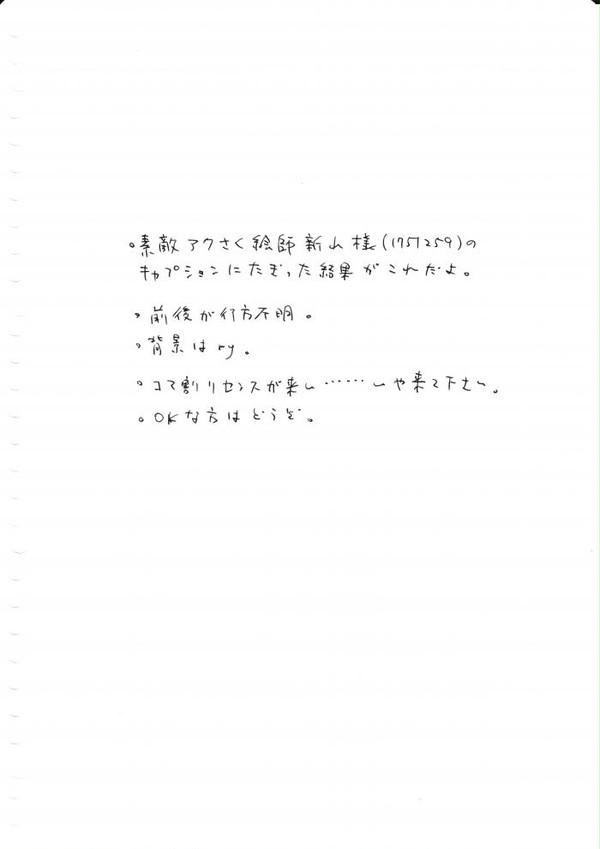 。素敵アクさく絵師新山様(1757259)の
キャプションにたぎった結果がこれだよ。
・前後が行方不明。
・背景はry。
・コマ割りセンスが来い……いや来て下さい。
・OKな方はどうぞ。